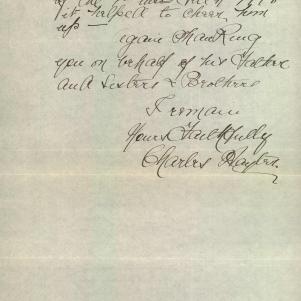 it helped to cheer him
up —
again thanking
you on behalf of his Father
and Sisters & Brothers
I remain
Yours Faithfully
Charles Hayter